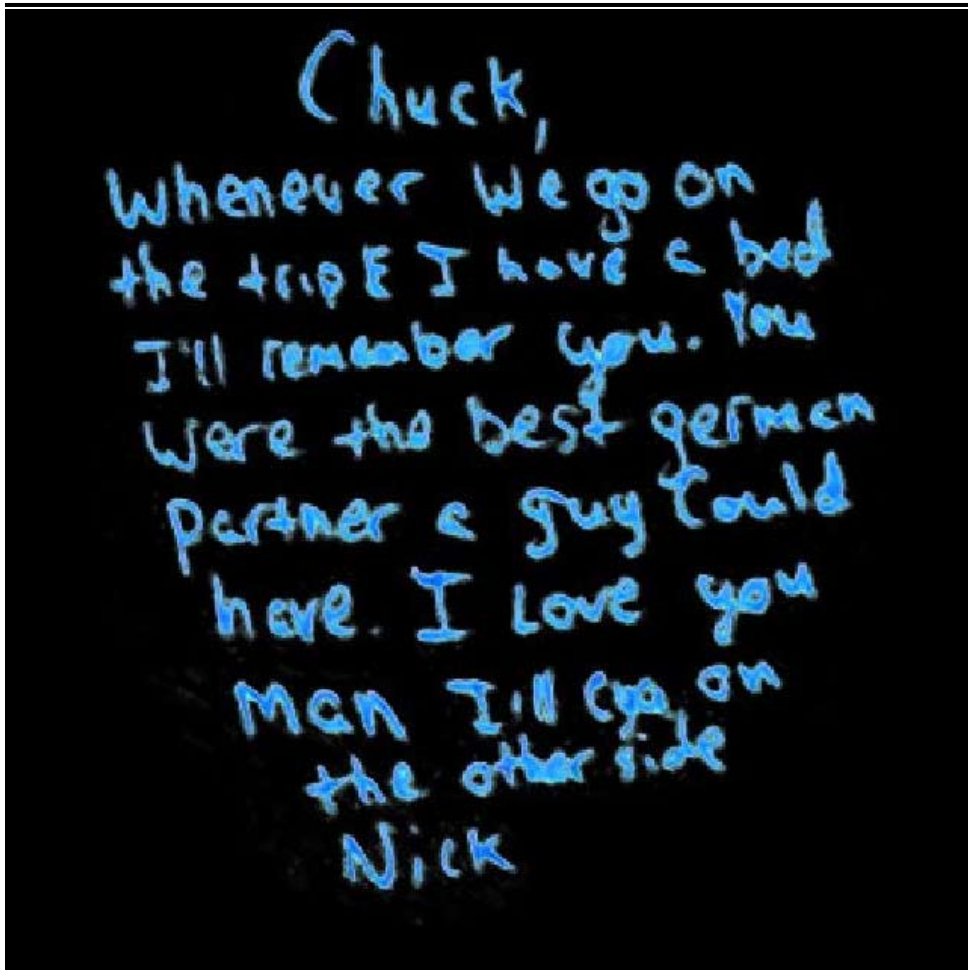 Chuck,
Whenever We go on
the trip & I have a bed
I'll remember you. You
Were the best german
partner a guy Could
have. I Love you
Man I'll cya on
the other side
Nick